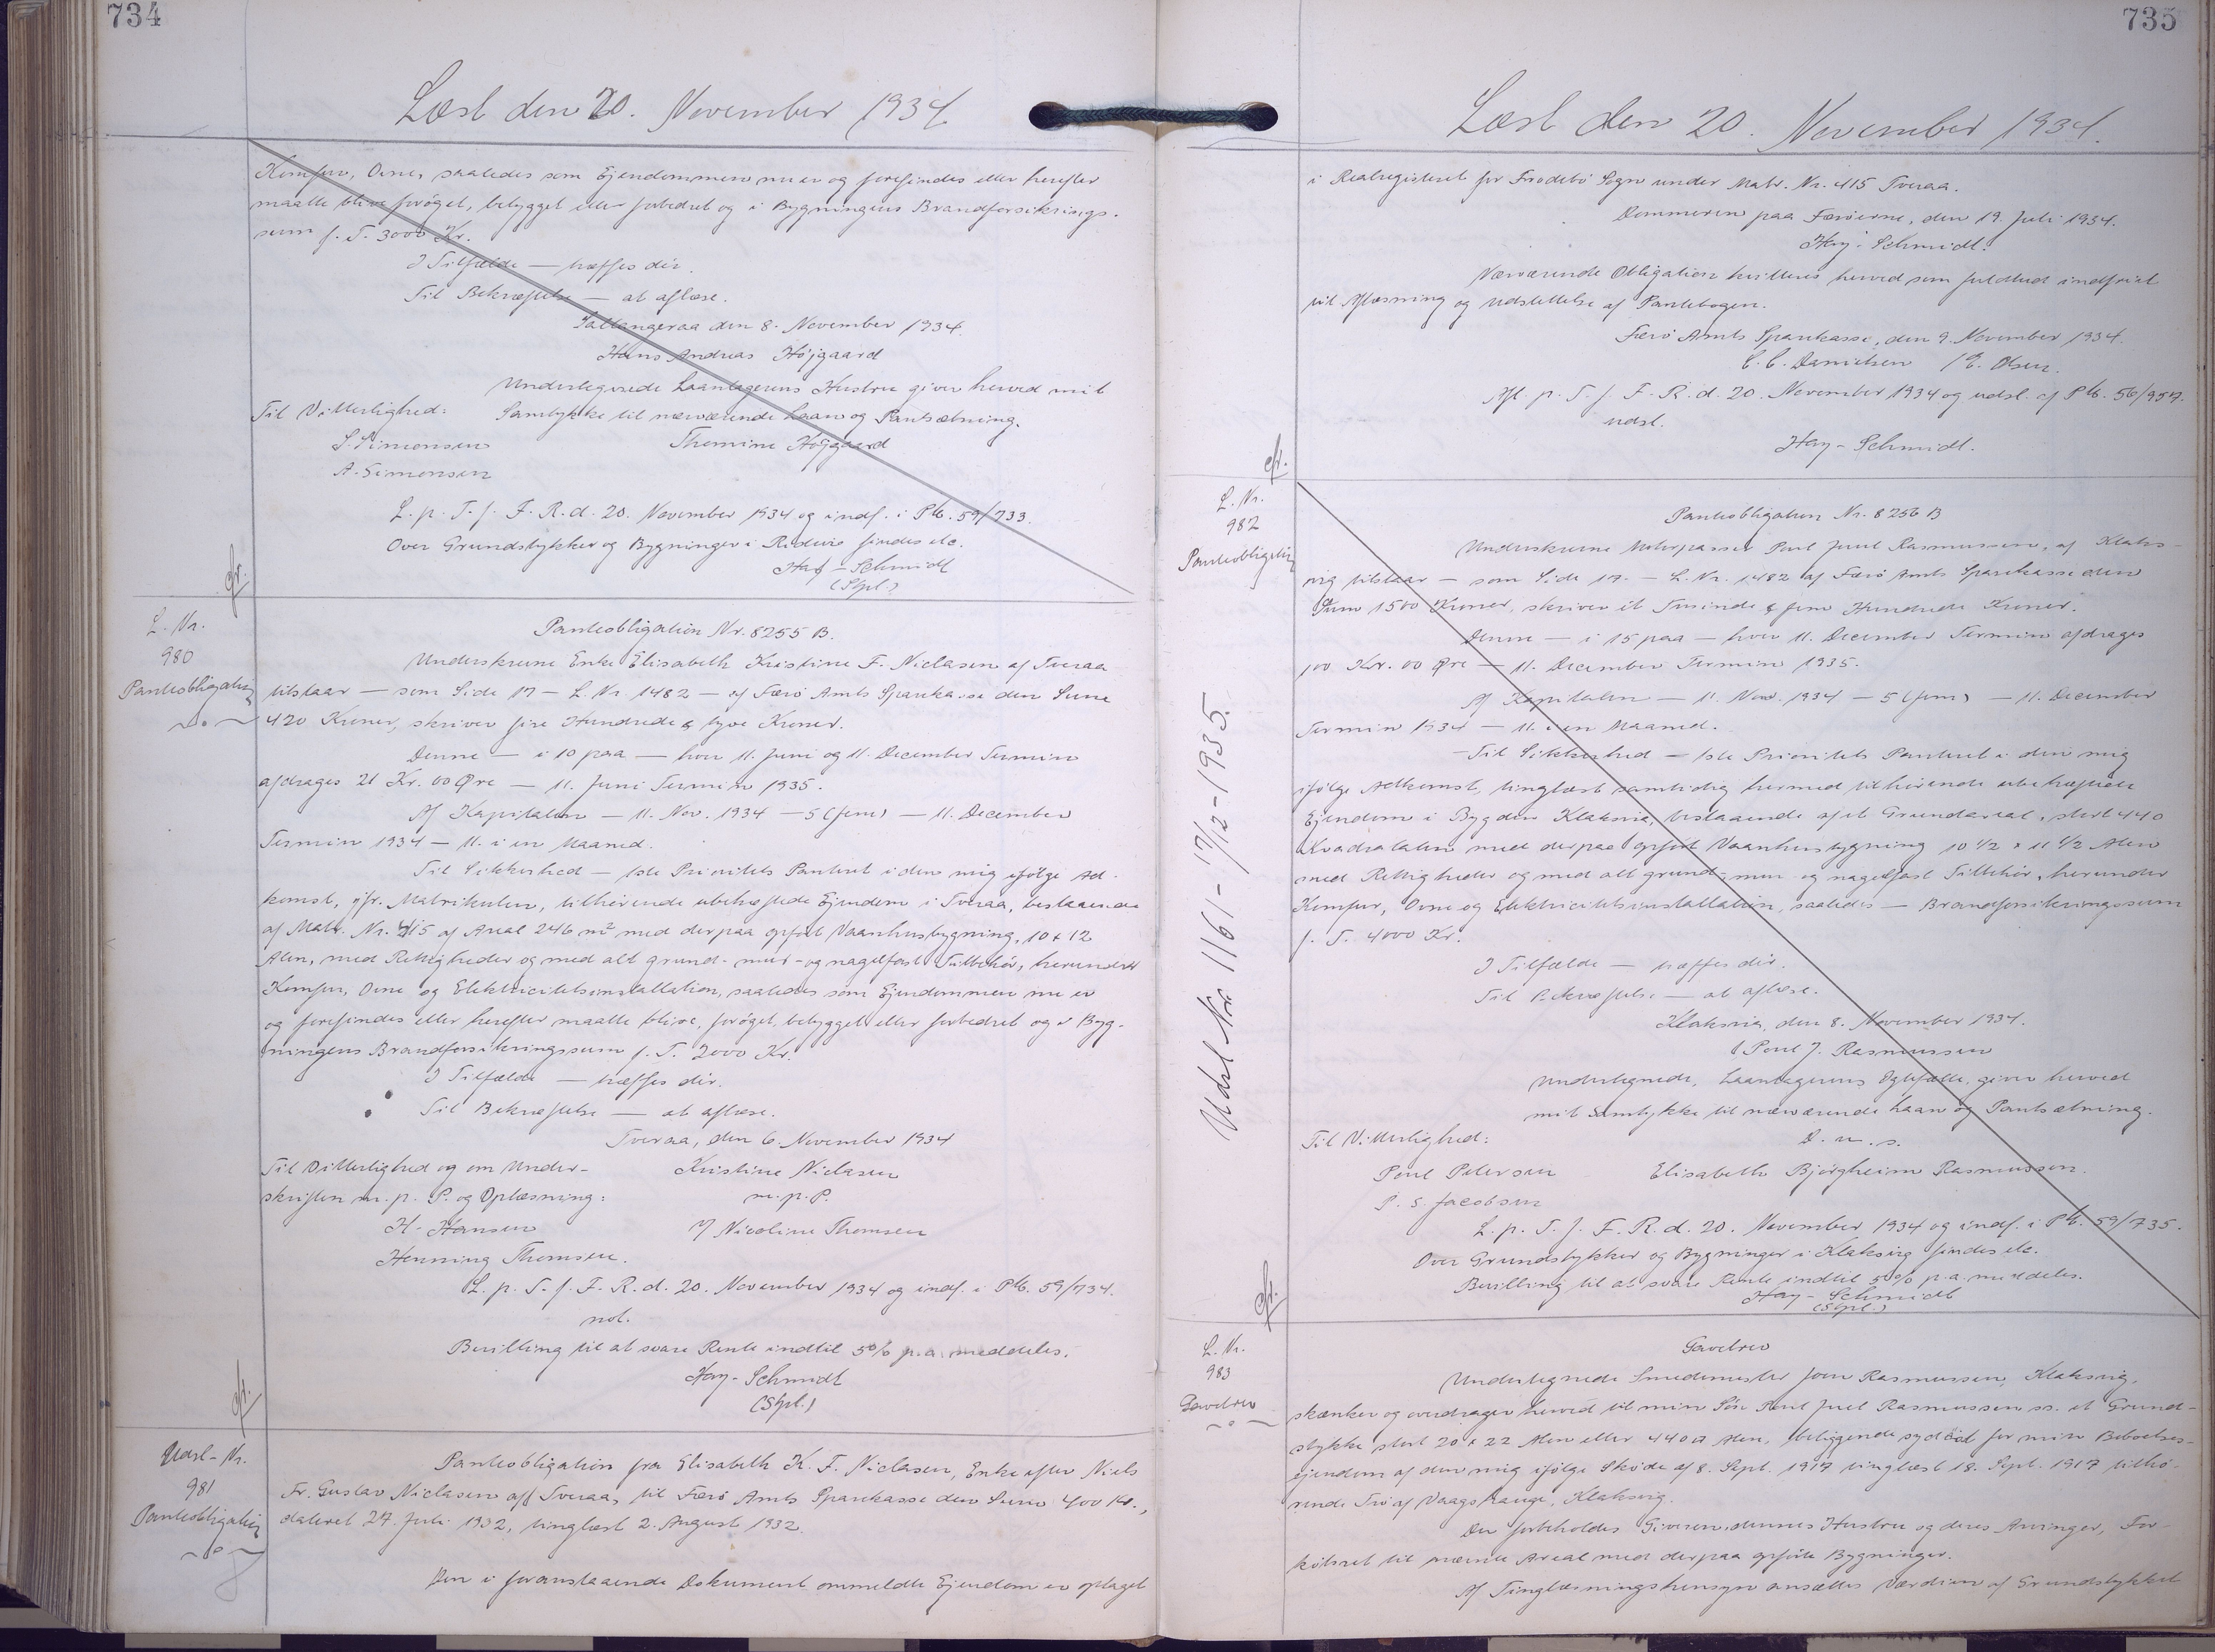 734
Læst den 20. November 1934.
Komfur, Ovne, saaledes som Ejendommen nu er og forefindes eller herefter
maatte blive forøget, bebygget eller forbedret og i Bygningens Brandforsikrings-
sum p. T. 3000 Kr.
I Tilfælde — træffes dér.
Til Bekræftelse — at aflæse.
Saltangeraa den 8. November 1934.
Hans Andreas Højgaard
Undertegnede Laantagerens Hustru giver herved mit
Til Vitterlighed: Samtykke til nærværende Laan og Pantsætning.
S. Simonsen Thomine Højgaard
A. Simonsen
L. p. T. f. F. R. d. 20. November 1934 og indf. i Ptb. 59/733.
Over Grundstykker og Bygninger i Ridevig findes etc.
Hay-Schmidt
(Stpl.)
cfr.
L. Nr.
980
Panteobligation
Panteobligation Nr. 8255 B.
Underskrevne Enke Elisabeth Kristine F. Niclasen af Tveraa
tilstaar — som Side 17 — L. Nr. 1482 — af Færø Amts Sparekasse den Sum
420 Kroner, skriver fire Hundrede & tyve Kroner.
Denne — i 10 paa — hver 11. Juni og 11. December Termin
afdrages 21 Kr. 00 Øre — 11. Juni Termin 1935.
Af Kapitalen — 11. Nov. 1934 — 5 (fem) — 11. December
Termin 1934 — 11. i en Maaned.
Til Sikkerhed — 1ste Prioritets Panteret i den mig ifølge Ad-
komst, jfr. Matrikulen, tilhørende ubehæftede Ejendom i Tveraa, bestaaende
af Matr. Nr. 415 af Areal 246 m² med derpaa opført Vaaningsbygning, 10 x 12
Alen, med Rettigheder og med alt grund- mur- og nagelfast Tilbehør, herunder
Komfur, Ovne og Elektricitetsinstallation, saaledes som Ejendommen nu er
og forefindes eller herefter maatte blive, forøget, bebygget eller forbedret og i Byg-
ningens Brandforsikringssum p. T. 2000 Kr.
I Tilfælde — træffes dér.
Til Bekræftelse — at aflæse.
Tveraa, den 6. November 1934
Til Vitterlighed og om Under- Kristine Niclasen
skriften m. p. P. og Oplæsning: m. p. P.
H. Hansen v/ Nicoline Thomsen
Henning Thomsen.
L. p. T. f. F. R. d. 20. November 1934 og indf. i Ptb. 59/734.
not.
Bevilling til at svare Rente indtil 5% p. a. meddeles.
Hay-Schmidt
(Stpl.)
cfr.
Udsl-Nr.
981
Panteobligation
Panteobligation fra Elisabeth K. F. Niclasen, Enke efter Niels
Fr. Gustav Niclasen af Tveraa, til Færø Amts Sparekasse den Sum 400 Kr.,
dateret 27. Juli 1932, tinglæst 2. August 1932.
Den i foranstaaende Dokument ommeldte Ejendom er optaget
735
Læst den 20. November 1934.
i Realregistret for Frodebø Sogn under Matr. Nr. 415 Tveraa.
Dommeren paa Færøerne, den 19. Juli 1934.
Hay-Schmidt.
Nærværende Obligation kvitteres herved som fuldtud indfriet
til Aflæsning og Udslettelse af Pantebogen.
Færø Amts Sparekasse, den 9. November 1934.
C. C. Danielsen / E. Olsen.
Afl. p. T. f. F. R. d. 20. November 1934 og udsl. af Ptb. 56/957.
udsl.
Hay-Schmidt.
cfr.
L. Nr.
982
Panteobligation
Panteobligation Nr. 8256 B
Underskrevne Motorpasser Poul Juul Rasmussen, af Klaks-
vig tilstaar — som Side 17. — L. Nr. 1482 af Færø Amts Sparekasse den
Sum 1500 Kroner, skriver et Tusinde & fem Hundrede Kroner.
Denne — i 15 paa — hver 11. December Termin afdrages
100 Kr. 00 Øre — 11. December Termin 1935.
Af Kapitalen — 11. Nov. 1934 — 5 (fem) — 11. December
Termin 1934 — 11. i en Maaned.
Til Sikkerhed — 1ste Prioritets Panteret i den mig
ifølge Adkomst, tinglæst samtidig hermed tilhørende ubehæftede
Ejendom i Bygden Klaksvig, bestaaende af et Grundareal, stort 440
Kvadratalen med derpaa opført Vaaningsbygning 10 1/2 x 11 1/2 Alen
med Rettigheder og med alt grund- mur- og nagelfast Tilbehør, herunder
Komfur, Ovne og Elektricitetsinstallation, saaledes — Brandforsikringssum
p. T. 4000 Kr.
I Tilfælde — træffes dér.
Til Bekræftelse — at aflæse.
Klaksvig, den 8. November 1934.
Poul J. Rasmussen
Undertegnede, Laantagerens Ægtefælle, giver herved
mit Samtykke til nærværende Laan og Pantsætning.
Til Vitterlighed: D. u. s.
Poul Petersen Elisabeth Bjørgheim Rasmussen.
P. S. Jacobsen
L. p. T. f. F. R. d. 20. November 1934 og indf. i Ptb. 59/735.
Over Grundstykker og Bygninger i Klaksvig findes etc.
Bevilling til at svare Rente indtil 5% p. a. meddeles.
Hay-Schmidt
(Stpl.)
Udsl Nr. 1161 - 17/12-1935.
cfr.
L. Nr.
983
Gavebrev
Gavebrev
Undertegnede Smedemester Joen Rasmussen, Klaksvig,
skænker og overdrager herved til min Søn Poul Juul Rasmussen ss. et Grund-
stykke stort 20 x 22 Alen eller 440 □ Alen, beliggende sydøst for min Beboelses-
ejendom af den mig ifølge Skøde af 8. Sept. 1917 tinglæst 18. Sept. 1917 tilhø-
rende Trø af Vaags Hauge, Klaksvig.
Der forbeholdes Giveren, dennes Hustru og deres Arvinger, For-
købsret til nævnte Areal med derpaa opførte Bygninger.
Af Tinglæsningshensyn ansættes Værdien af Grundstykket